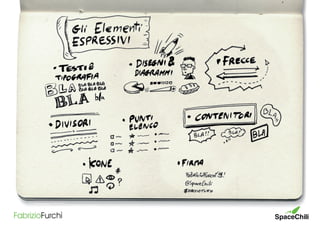 Gli Elementi
ESPRESSIVI
• TESTI &
TIPOGRAFIA
BLA BLA BLA BLA
BLA BLA BLA
BLA bla
• DISEGNI &
DIAGRAMMI
• FRECCE
• DIVISORI
• PUNTI
ELENCO
• CONTENITORI
BLA!!
BLA
BLA
BLA
• ICONE
?
• FIRMA
@SpaceChili
FabrizioFurchì
SpaceChili